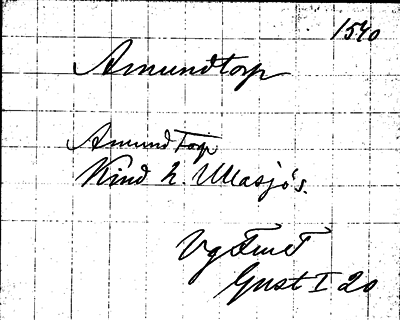 1540
Amundtorp
Amund Torp
Kind h. Ullasjö s.
Vg Fmt
Gust I 20